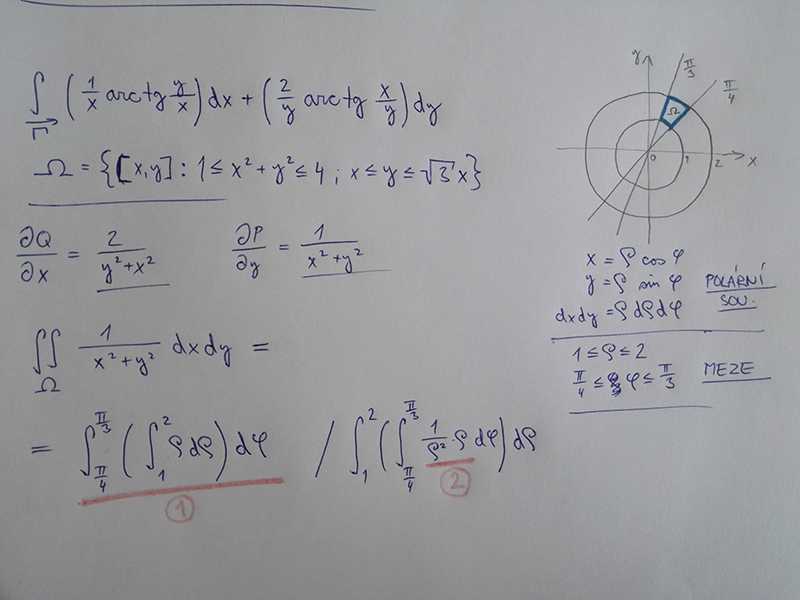 ∫_Γ (1/x arctg y/x) dx + (2/y arctg x/y) dy
Ω = {[x,y] : 1 ≤ x² + y² ≤ 4 ; x ≤ y ≤ √3 x}
∂Q/∂x = 2/(y² + x²)   ∂P/∂y = 1/(x² + y²)
∬_Ω 1/(x² + y²) dx dy =
= ∫_{π/4}^{π/3} (∫_1^2 ρ dρ) dφ / ∫_1^2 (∫_{π/4}^{π/3} 1/ρ² · ρ dφ) dρ
① ②
y π/3
π/4
Ω
0 1 2 x
x = ρ cos φ
y = ρ sin φ POLÁRNÍ
SOU.
dxdy = ρ dρ dφ
1 ≤ ρ ≤ 2
π/4 ≤ φ ≤ π/3 MEZE